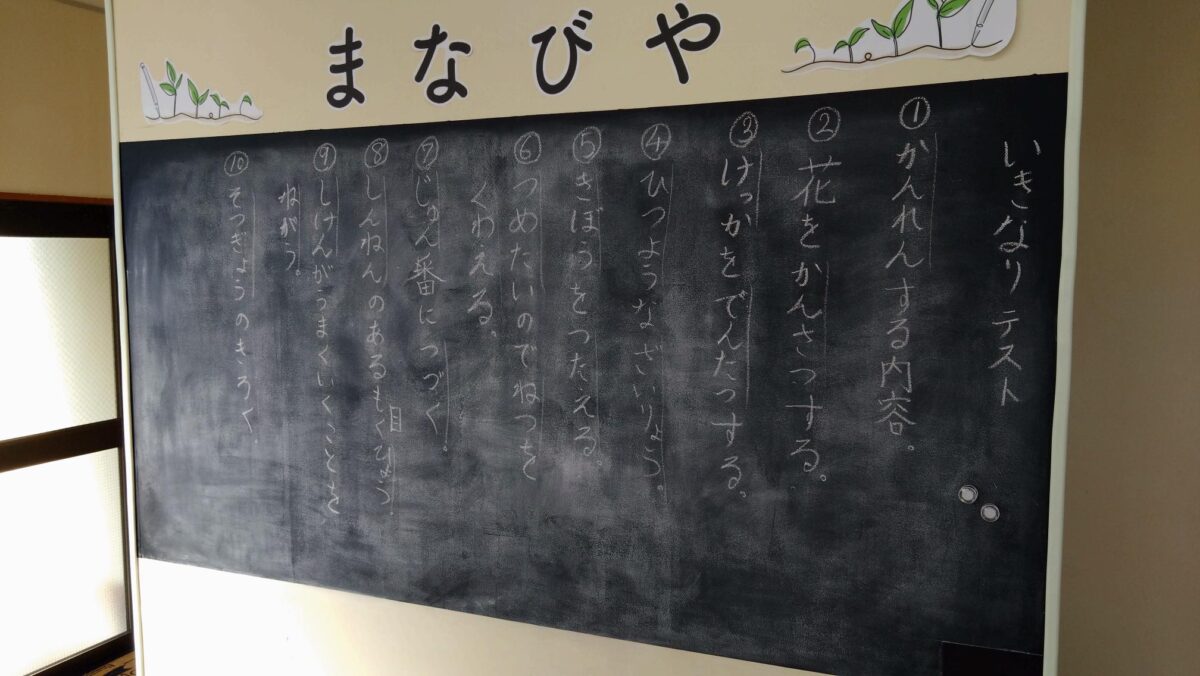 まなびや
いきなりテスト
①かんれんする内容。
②花をかんさつする。
③けっかをでんたつする。
④ひつようなざいりょう。
⑤きぼうをつたえる。
⑥つめたいのでねつを
くわえる。
⑦じゅん番につづく。
⑧しんねんのあるもくひょう。
目
⑨しけんがうまくいくことを
ねがう。
⑩そつぎょうのきろく。